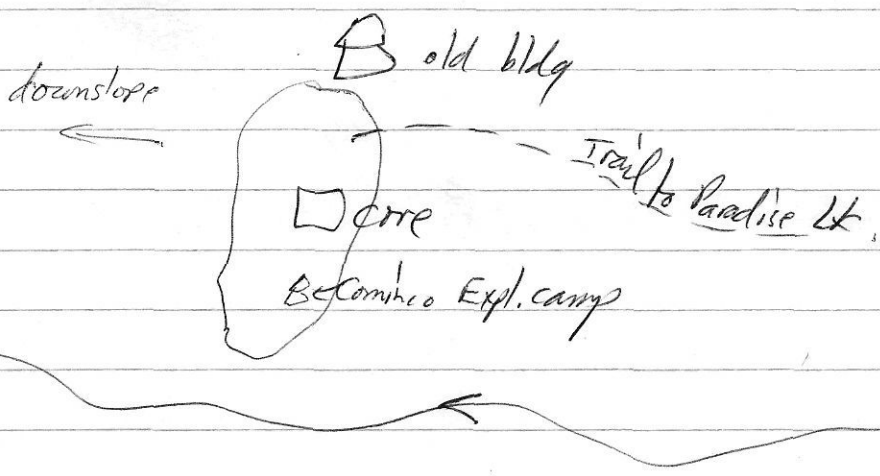 old bldg
downslope
Trail to Paradise Lk.
core
Cominco Expl. camp